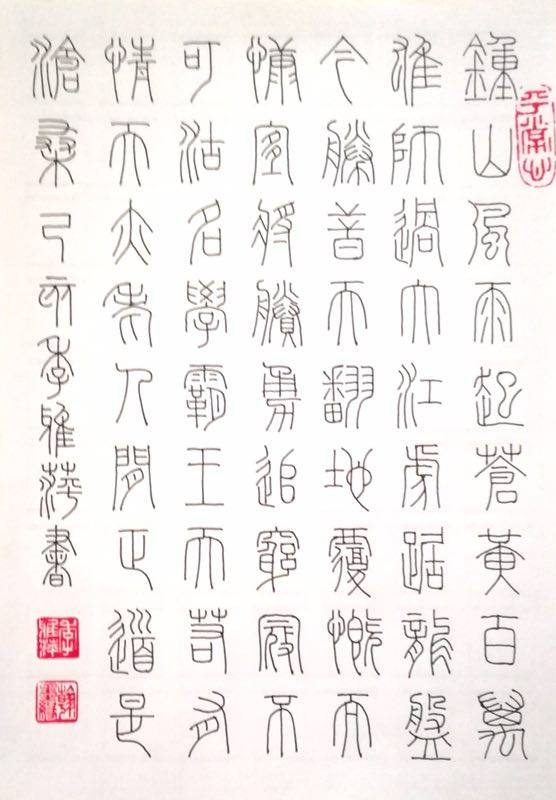 鍾山風雨起蒼黃百萬
雄師過大江虎踞龍盤
今勝昔天翻地覆慨而
慷宜將賸勇追窮寇不
可沽名學霸王天若有
情天亦老人間正道是
滄桑己亥季雅萍書
平常心
季雅萍